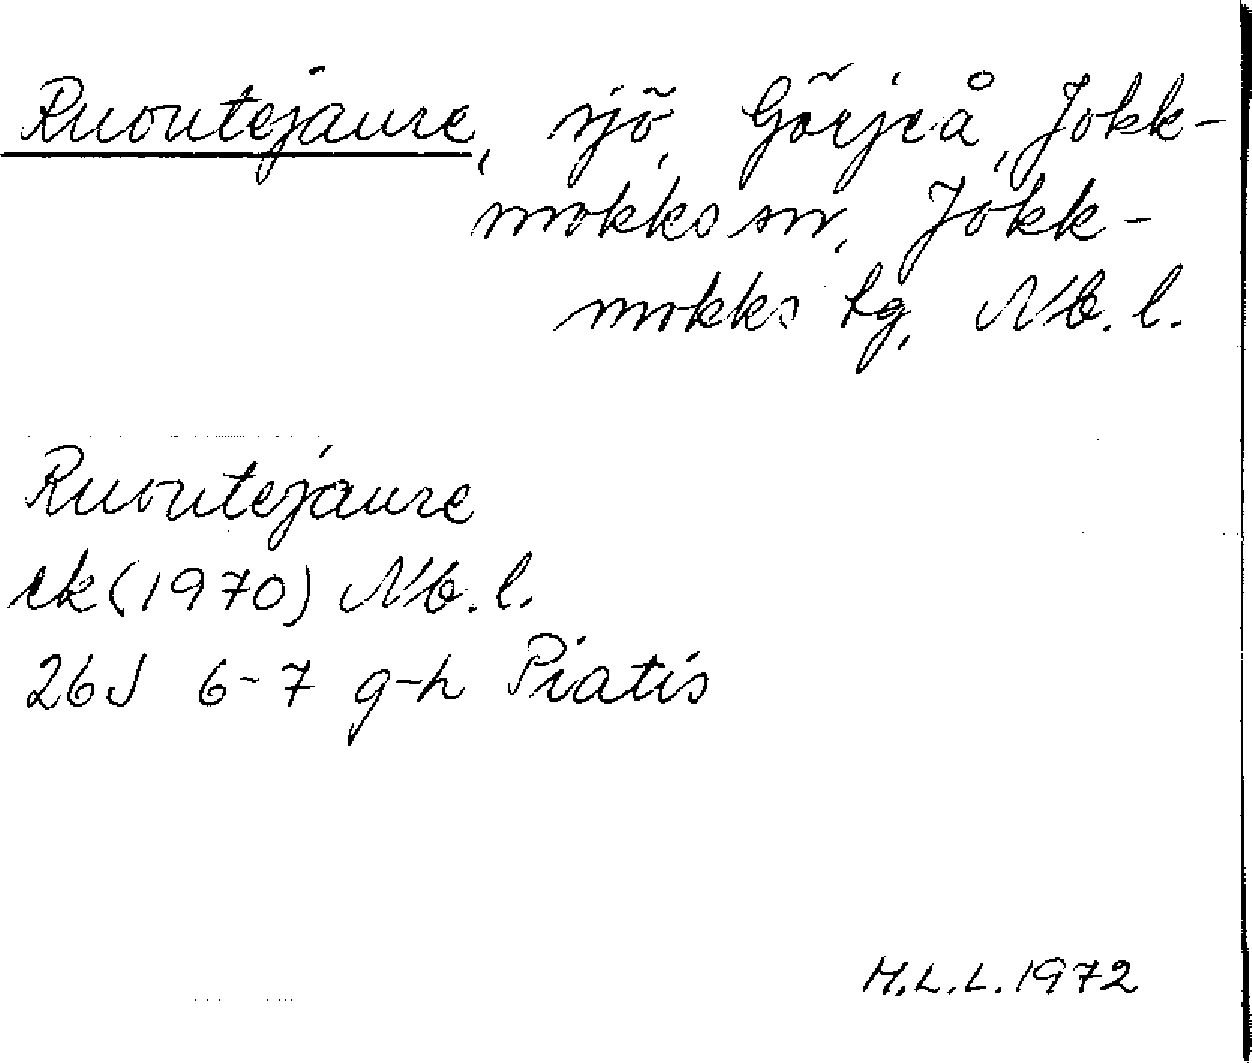 Ruoutejaure, sjö, Görjeå, Jokk-
mokks sn, Jokk-
mokks lg, Nb. l.
Ruoutejaure
ek (1970) Nb. l.
26J 6-7 g-h Piatis
M.L.L. 1972